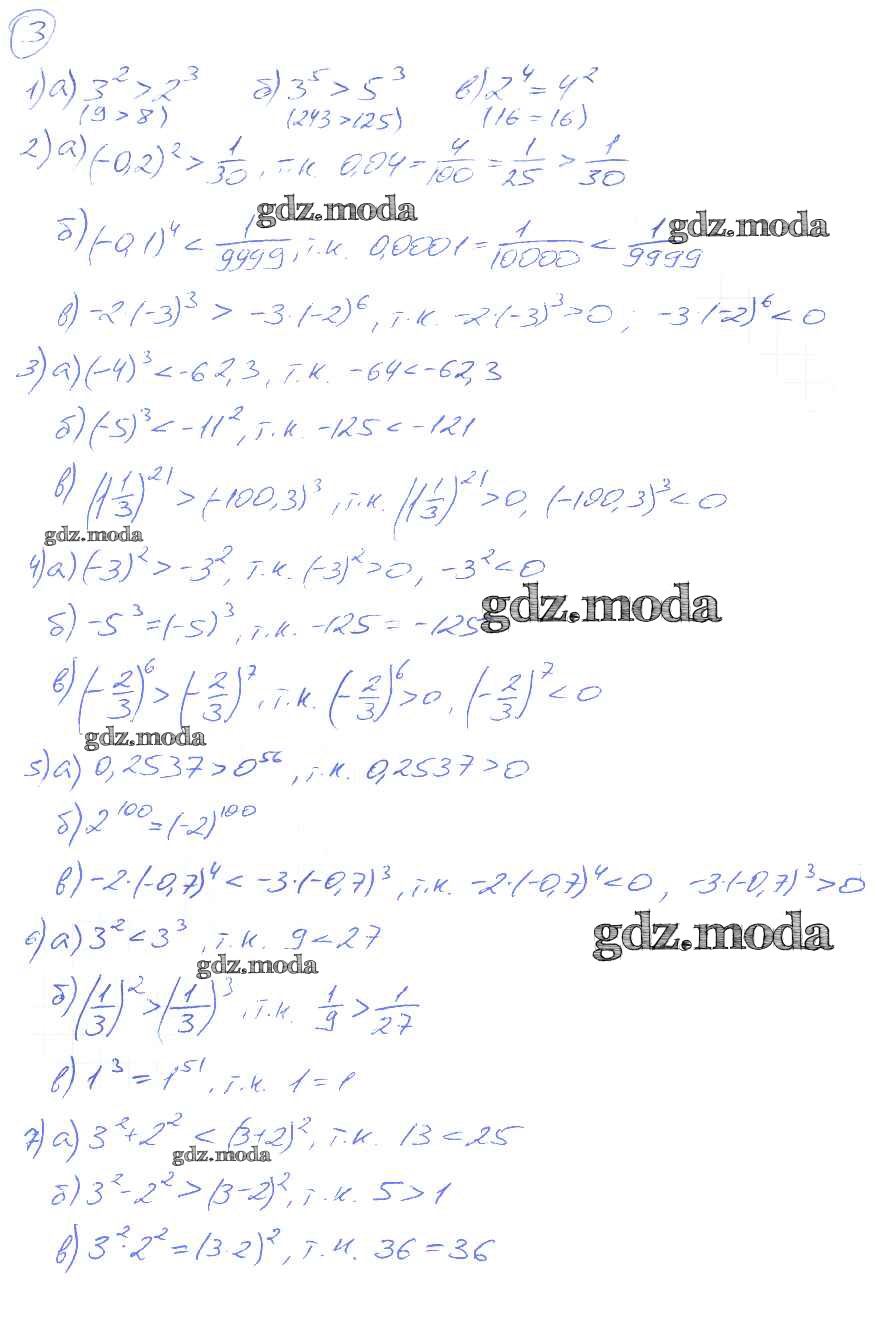 3
1) а) 3² > 2³ б) 3⁵ > 5³ в) 2⁴ = 4²
(9 > 8) (243 > 125) (16 = 16)
2) а) (-0,2)² > 1/30, т.к. 0,04 = 4/100 = 1/25 > 1/30
gdz.moda
б) (-0,1)⁴ < 1/9999, т.к. 0,0001 = 1/10000 < 1/9999
gdz.moda
в) -2·(-3)³ > -3·(-2)⁶, т.к. -2·(-3)³ > 0; -3·(-2)⁶ < 0
3) а) (-4)³ < -62,3, т.к. -64 < -62,3
б) (-5)³ < -11², т.к. -125 < -121
в) (1 1/3)²¹ > (-100,3)³, т.к. (1 1/3)²¹ > 0, (-100,3)³ < 0
gdz.moda
4) а) (-3)² > -3², т.к. (-3)² > 0, -3² < 0
б) -5³ = (-5)³, т.к. -125 = -125
gdz.moda
в) (-2/3)⁶ > (-2/3)⁷, т.к. (-2/3)⁶ > 0, (-2/3)⁷ < 0
gdz.moda
5) а) 0,2537 > 0⁵⁶, т.к. 0,2537 > 0
б) 2¹⁰⁰ = (-2)¹⁰⁰
в) -2·(-0,7)⁴ < -3·(-0,7)³, т.к. -2·(-0,7)⁴ < 0, -3·(-0,7)³ > 0
6) а) 3² < 3³, т.к. 9 < 27
gdz.moda
gdz.moda
б) (1/3)² > (1/3)³, т.к. 1/9 > 1/27
в) 1³ = 1⁵¹, т.к. 1 = 1
7) а) 3² + 2² < (3+2)², т.к. 13 < 25
gdz.moda
б) 3² - 2² > (3-2)², т.к. 5 > 1
в) 3²·2² = (3·2)², т.к. 36 = 36